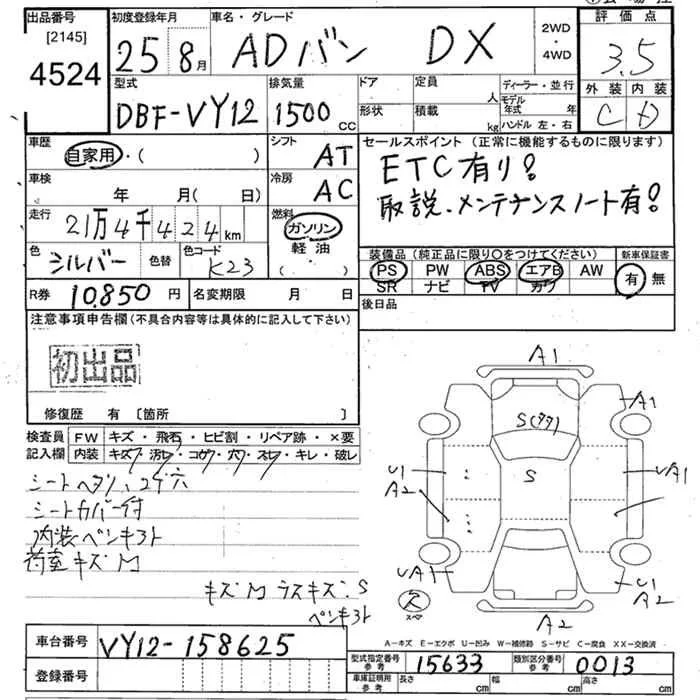 出品番号
[2145]
4524
初度登録年月
25 8月
車名・グレード
ADバン DX
2WD
・
4WD
評価点
3.5
外装 内装
C D
型式
DBF-VY12
排気量
1500 CC
ドア
形状
定員
人
積載
kg
ディーラー・並行
モデル年式 年
ハンドル 左・右
車歴
自家用・( )
シフト
AT
車検
年 月( 日)
冷房
AC
走行
21万4千424km
燃料
ガソリン
軽油
( . )
色
シルバー
色替
色コード
K23
R券 10.850 円
名変期限 月 日
セールスポイント (正常に機能するものに限ります)
ETC有り!
取説.メンテナンスノート有!
装備品 (純正品に限り○をつけてください)
新車保証書
PS PW ABS エアB AW
SR ナビ TV カワ
有 無
後日品
注意事項申告欄 (不具合内容等は具体的に記入して下さい)
初出品
修復歴 有 [箇所 ]
検査員
記入欄
FW キズ・飛石・ヒビ割・リペア跡・×要
内装 キズ・汚レ・コゲ・穴・スレ・キレ・破レ
シートヘタリ、コゲ穴
シートカバー付
内装ペンキヨト
荷室キズM
キズM ラスキズ:S
ペンキヨト
A1
A1
S(タタ)
S
U1
A2
UA1
UA1
U1
A2
A2
スペア
A-キズ E-エクボ U-凹み W-補修跡 S-サビ C-腐食 XX-交換済
車台番号
VY12-158625
登録番号
型式指定番号
参考
15633
類別区分番号
参考
0013
車庫証明用
参考
長さ cm
幅 cm
高さ cm